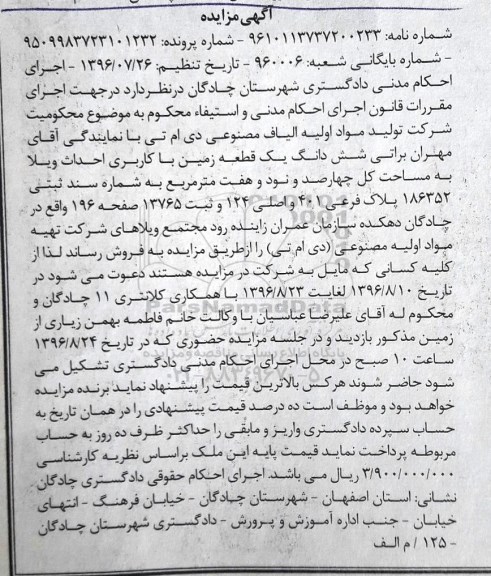 آگهی مزایده
شماره نامه: ۹۶۱۰۱۱۳۷۳۷۲۰۰۲۳۳ - شماره پرونده: ۹۵۰۹۹۸۳۷۲۳۱۰۱۲۳۲
- شماره بایگانی شعبه: ۹۶۰۰۰۶ - تاریخ تنظیم: ۱۳۹۶/۰۷/۲۶ - اجرای
احکام مدنی دادگستری شهرستان چادگان درنظردارد درجهت اجرای
مقررات قانون اجرای احکام مدنی و استیفاء محکوم به موضوع محکومیت
شرکت تولید مواد اولیه الیاف مصنوعی دی ام تی با نمایندگی آقای
مهران براتی شش دانگ یک قطعه زمین با کاربری احداث ویلا
به مساحت کل چهارصد و نود و هفت مترمربع به شماره سند ثبتی
۱۸۶۳۵۲ پلاک فرعی ۴۰۱ و اصلی ۱۲۴ و ثبت ۱۳۷۶۵ صفحه ۱۹۶ واقع در
چادگان دهکده سازمان عمران زاینده رود مجتمع ویلاهای شرکت تهیه
مواد اولیه مصنوعی (دی ام تی) را ازطریق مزایده به فروش رساند لذا از
کلیه کسانی که مایل به شرکت در مزایده هستند دعوت می شود در
تاریخ ۱۳۹۶/۸/۱۰ لغایت ۱۳۹۶/۸/۲۳ با همکاری کلانتری ۱۱ چادگان و
محکوم له آقای علیرضا عباسیان با وکالت خانم فاطمه بهمن زیاری از
زمین مذکور بازدید و در جلسه مزایده حضوری که در تاریخ ۱۳۹۶/۸/۲۴
ساعت ۱۰ صبح در محل اجرای احکام مدنی دادگستری تشکیل می
شود حاضر شوند هرکس بالاترین قیمت را پیشنهاد نماید برنده مزایده
خواهد بود و موظف است ده درصد قیمت پیشنهادی را در همان تاریخ به
حساب سپرده دادگستری واریز و مابقی را حداکثر ظرف ده روز به حساب
مربوطه پرداخت نماید قیمت پایه این ملک براساس نظریه کارشناسی
۳/۹۰۰/۰۰۰/۰۰۰ ریال می باشد. اجرای احکام حقوقی دادگستری چادگان
نشانی: استان اصفهان - شهرستان چادگان - خیابان فرهنگ - انتهای
خیابان - جنب اداره آموزش و پرورش - دادگستری شهرستان چادگان
- ۱۲۵ / م الف
ParsNamadData